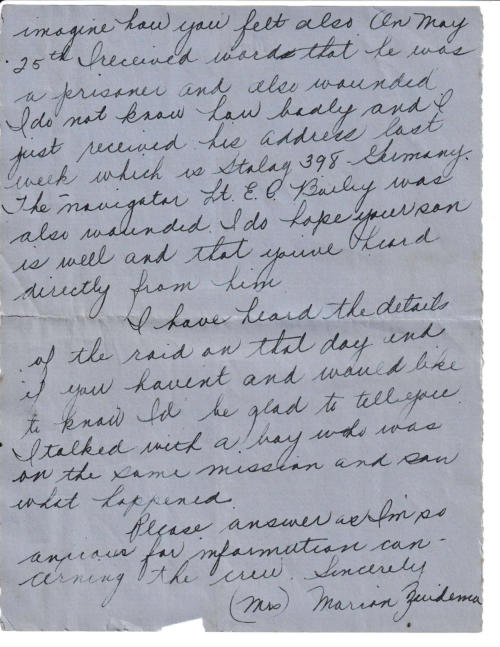 imagine how you felt also. On May
25th I received words that he was
a prisoner and also wounded.
I do not know how badly and I
just received his address last
week which is Stalag 398 - Germany.
The navigator Lt. E. C. Bailey was
also wounded. I do hope your son
is well and that you've heard
directly from him.
I have heard the details
of the raid on that day and
if you havent and would like
to know I'd be glad to tell you.
I talked with a boy who was
on the same mission and saw
what happened.
Please answer as I'm so
anxious for information con-
cerning the crew. Sincerely
(Mrs) Marion Zuidema